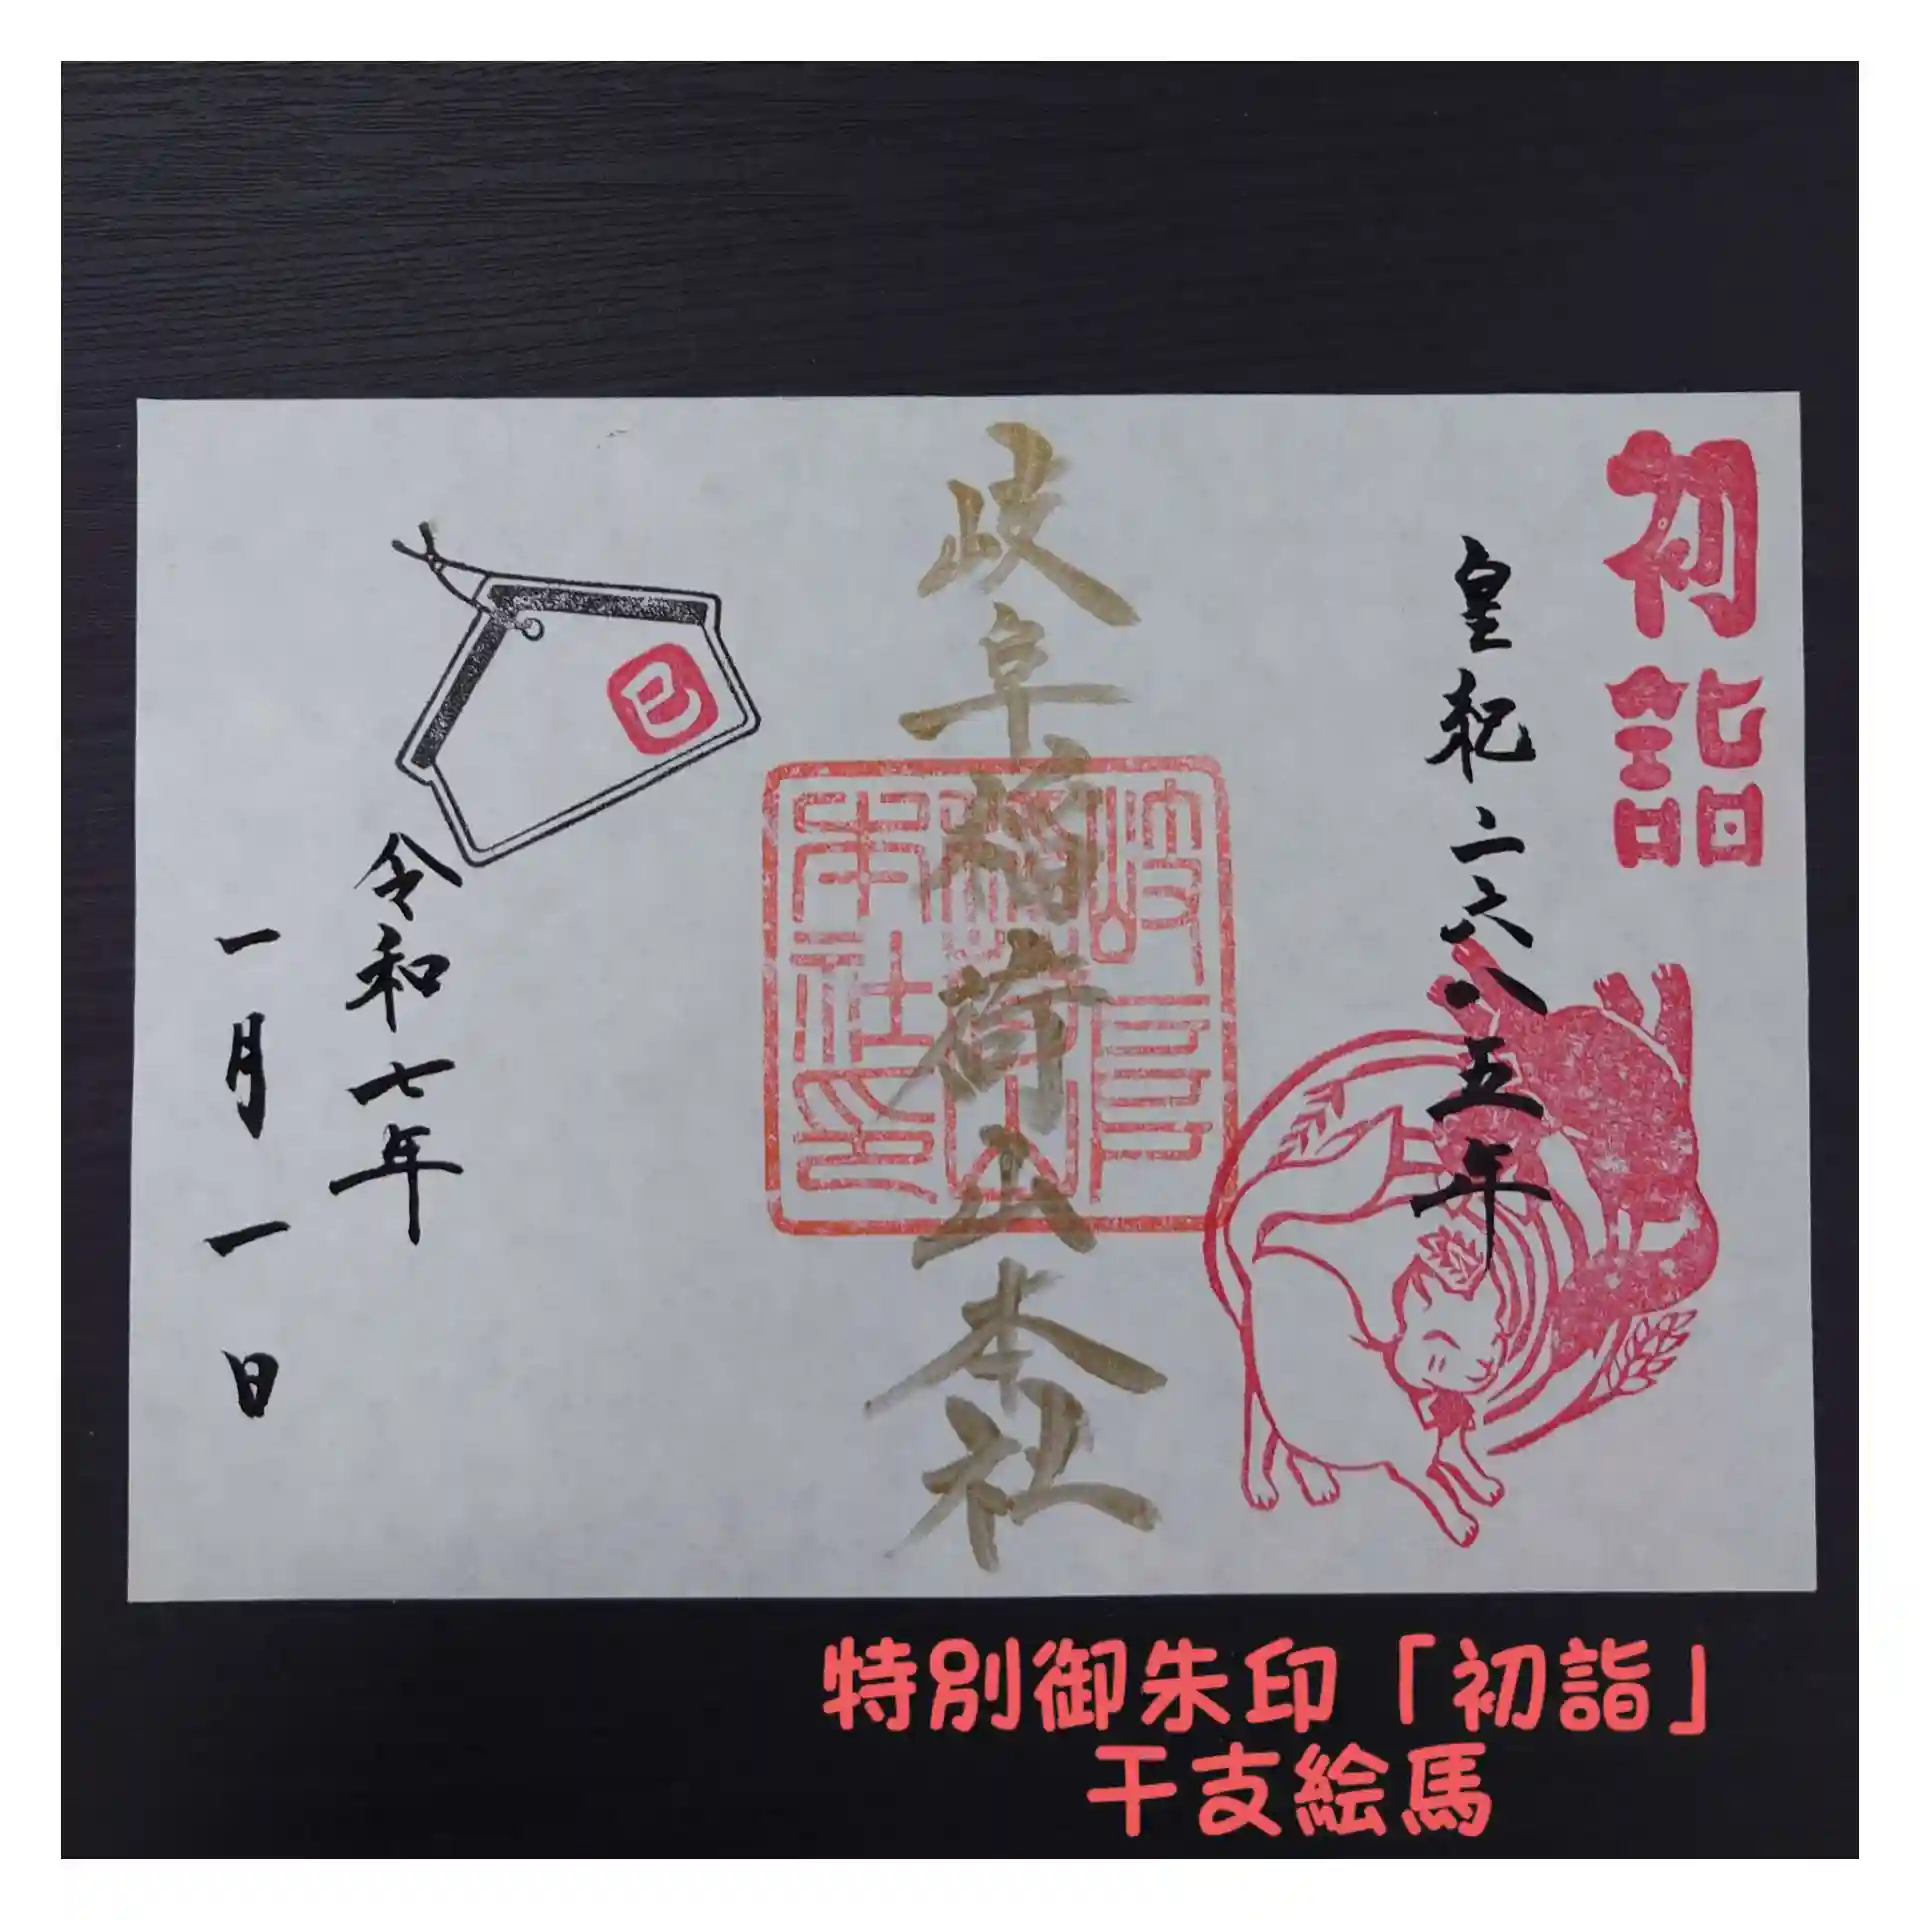 初詣
皇紀二六八五年
岐阜稲荷山本社
岐阜
稲荷山
本社印
巳
令和七年
一月一日
特別御朱印「初詣」
干支絵馬